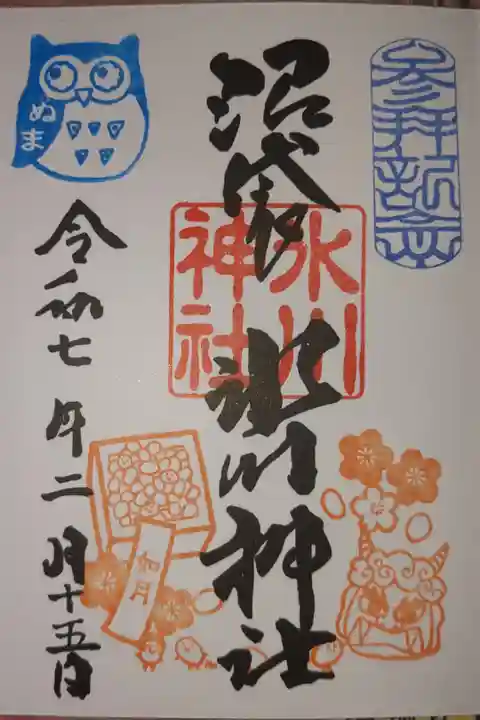 參拝記念
沼袋 氷川神社
氷川神社
ぬま
令和七年二月十五日
如月